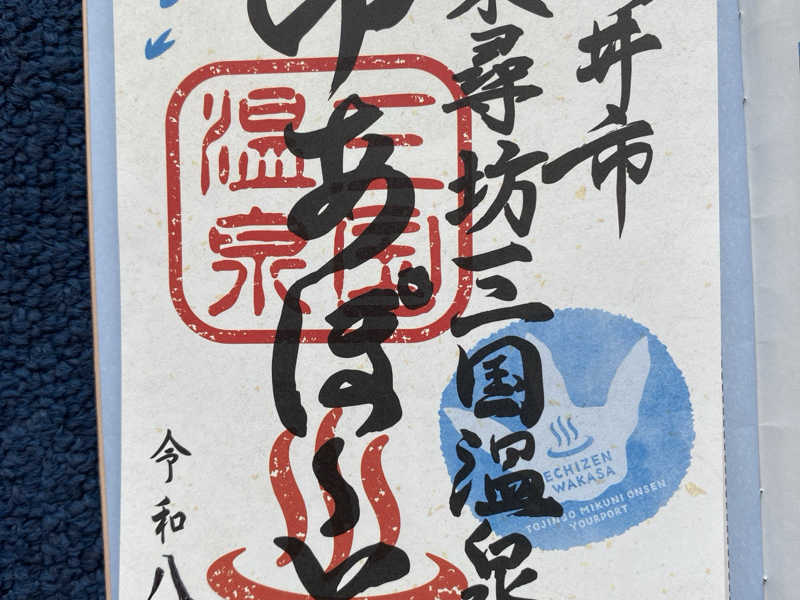 井市
尋坊三国温泉
ゆあぽーと
令和八
三国
温泉
ECHIZEN
WAKASA
TOJINBO MIKUNI ONSEN
YOURPORT